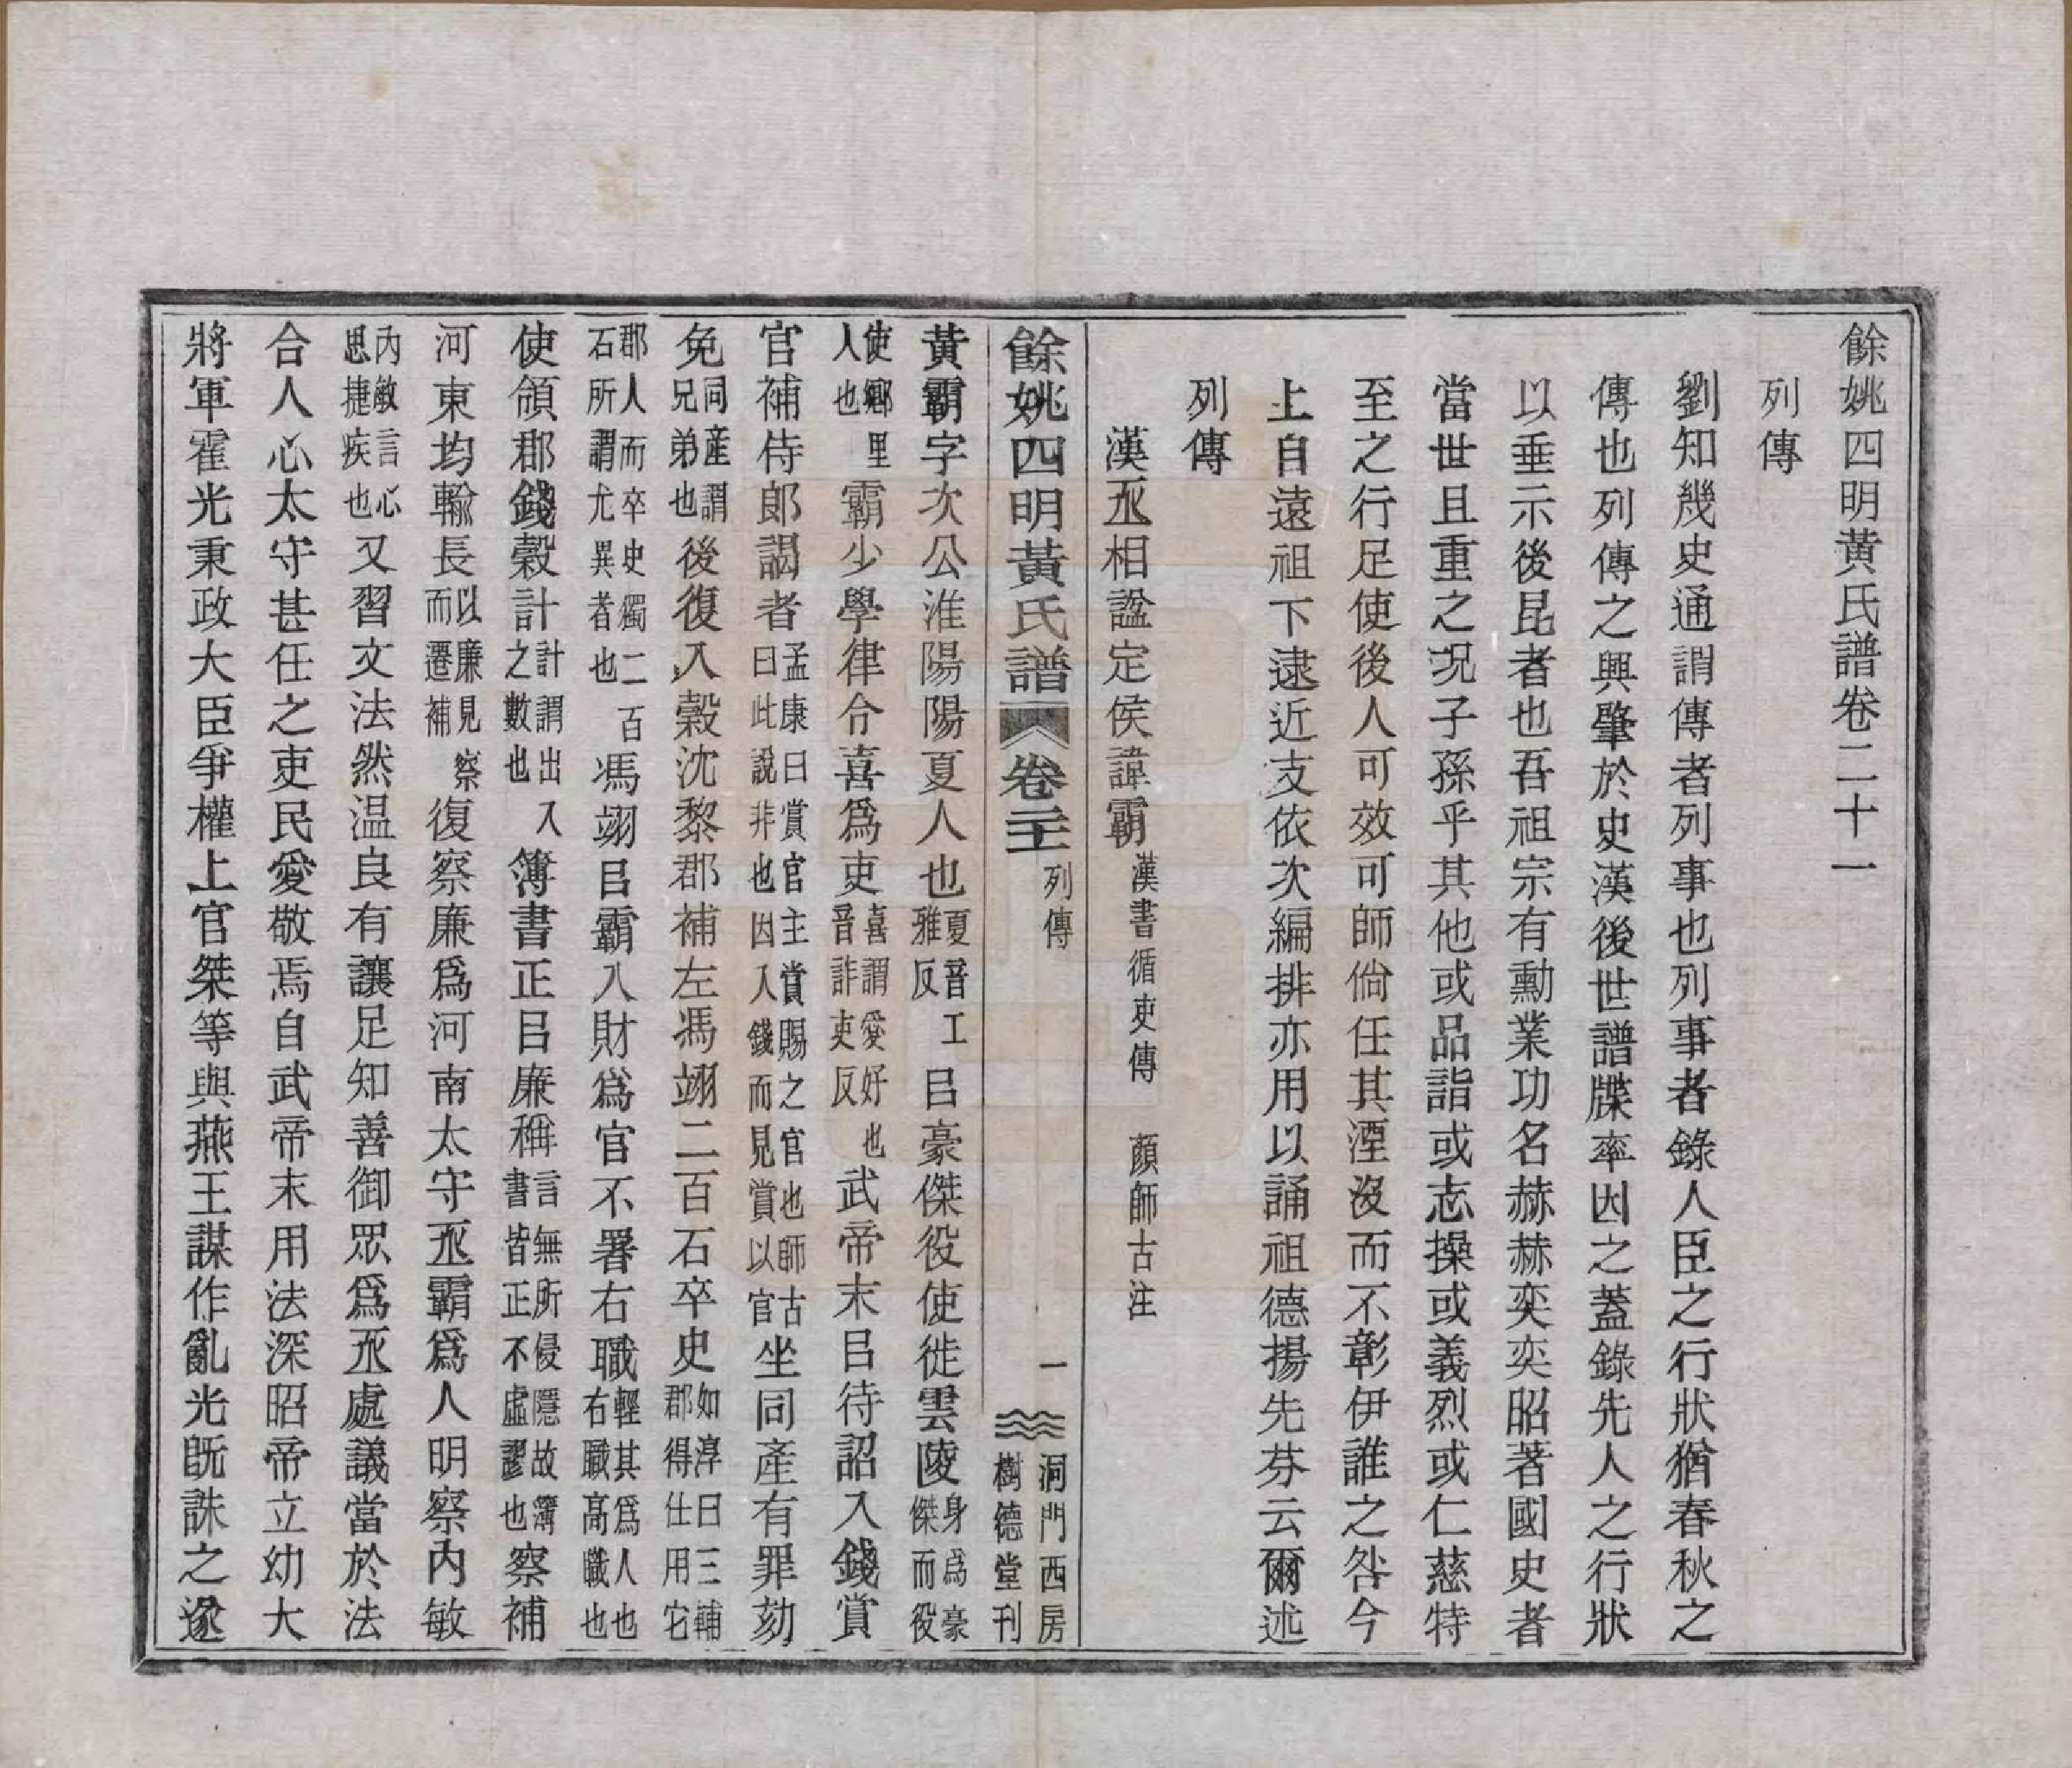 餘姚四明黃氏譜卷二十一
列傳
劉知幾史通謂傳者列事也列事者錄人臣之行狀猶春秋之
傳也列傳之興肇於史漢後世譜牒率因之蓋錄先人之行狀
以垂示後昆者也吾祖宗有勳業功名赫赫奕奕昭著國史者
當世且重之況子孫乎其他或品詣或志操或義烈或仁慈特
至之行足使後人可效可師倘任其湮沒而不彰伊誰之咎今
上自遠祖下逮近支依次編排亦用以誦祖德揚先芬云爾述
列傳
漢丞相諡定侯諱霸漢書循吏傳 顏師古注
餘姚四明黃氏譜 卷二十一 列傳 一 洞門西房樹德堂刊
黃霸字次公淮陽陽夏人也夏音工雅反㠯豪傑役使徙雲陵身爲豪傑而役
使鄉里人也霸少學律令喜爲吏喜謂愛好也音許吏反武帝末㠯待詔入錢賞
官補侍郎謁者孟康曰賞官主賞賜之官也師古曰此說非也因入錢而見賞以官坐同產有罪劾
免同產謂兄弟也後復入穀沈黎郡補左馮翊二百石卒史如淳曰三輔郡得仕用它
郡人而卒史獨二百石所謂尤異者也馮翊㠯霸入財爲官不署右職輕其爲人也右職高職也
使領郡錢穀計計謂出入之數也簿書正㠯廉稱言無所侵隱故簿書皆正不虛謬也察補
河東均輸長以廉見察而遷補復察廉爲河南太守丞霸爲人明察內敏
內敏言心思捷疾也又習文法然温良有讓足知善御眾爲丞處議當於法
合人心太守甚任之吏民愛敬焉自武帝末用法深昭帝立幼大
將軍霍光秉政大臣爭權上官桀等與燕王謀作亂光既誅之遂